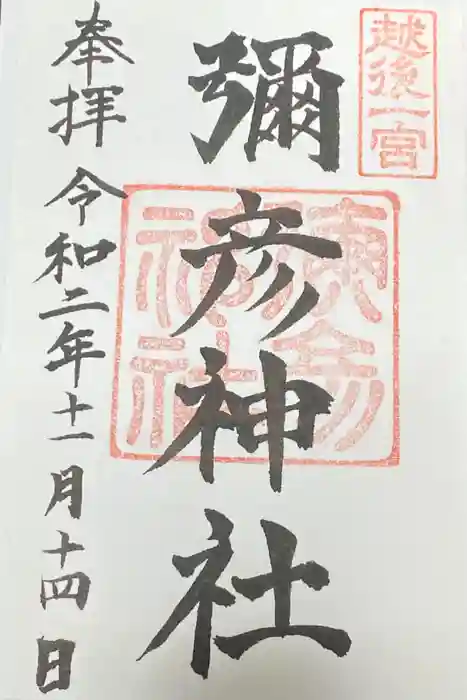 越後一宮
彌彦神社
奉拝 令和二年十一月十四日